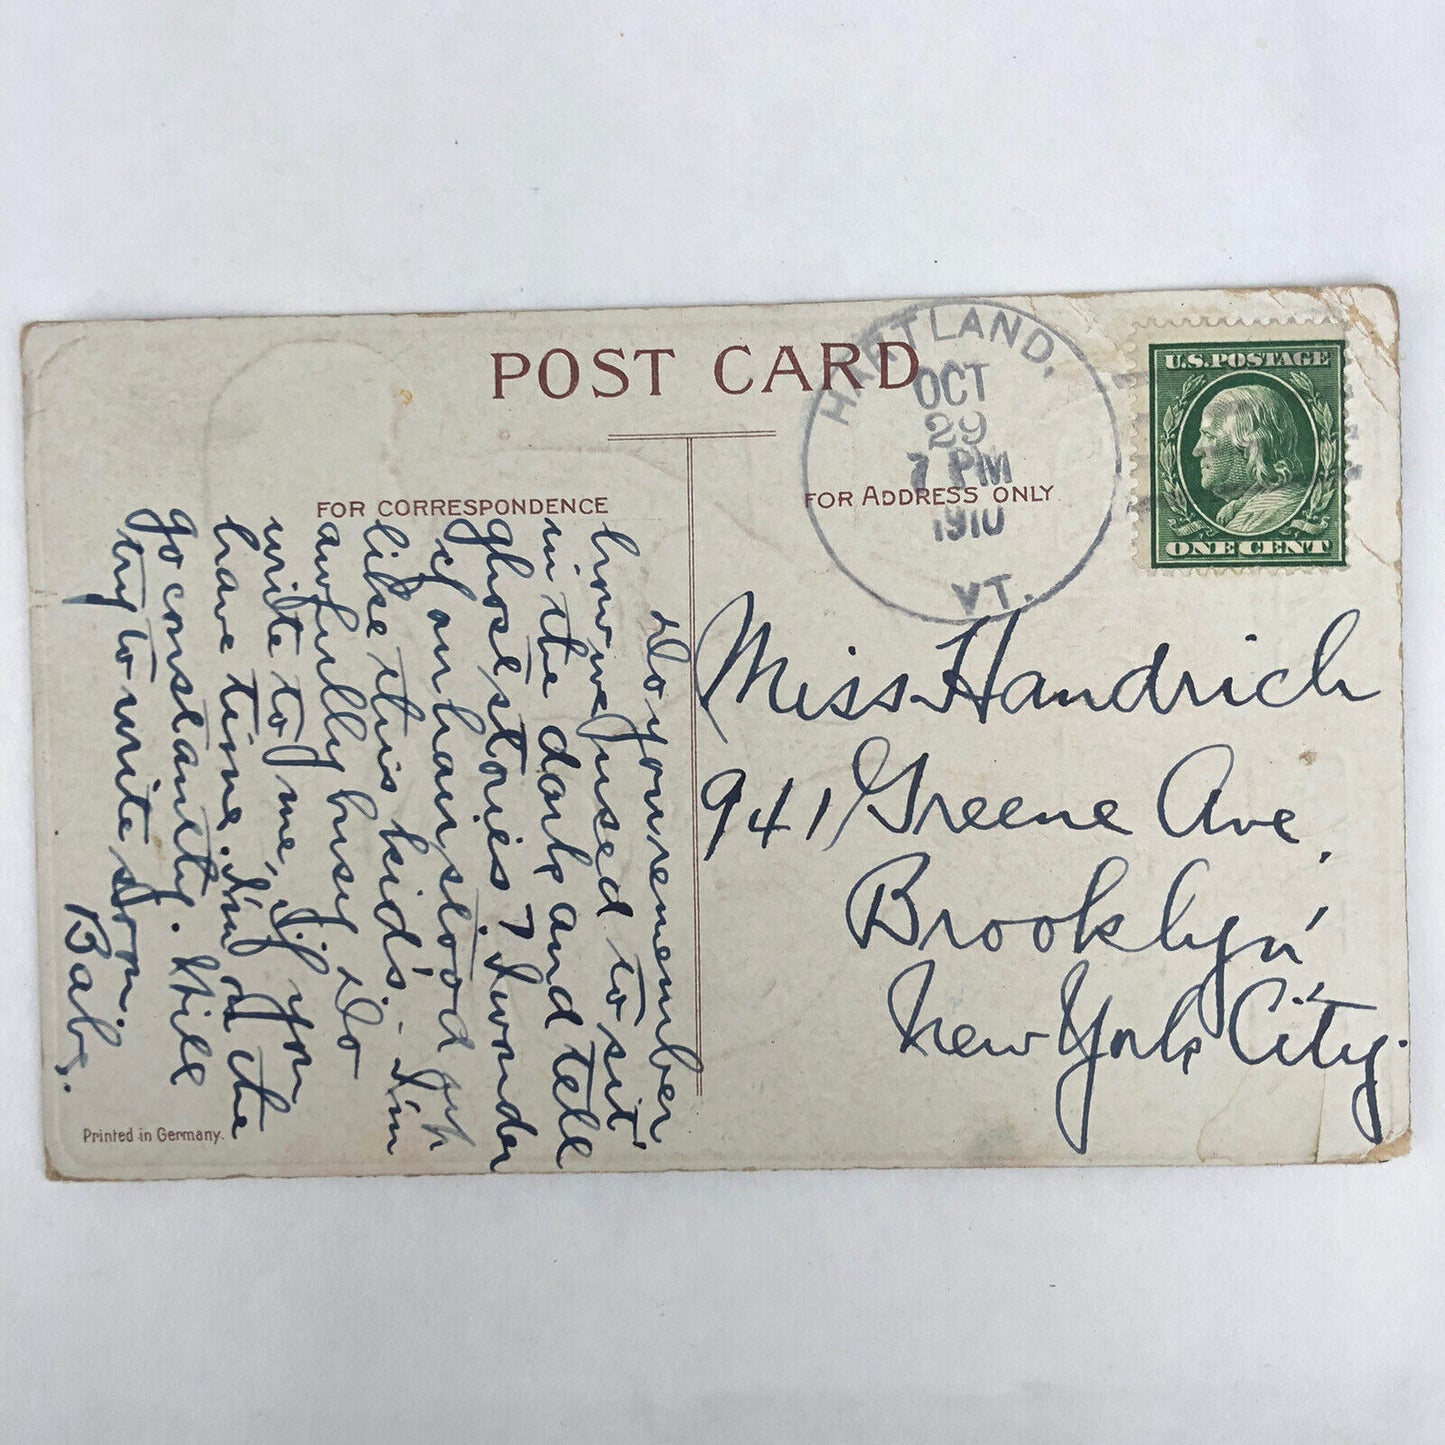 POST CARD
HARTLAND,
OCT
29
7 PM
1910
VT.
U.S. POSTAGE
ONE CENT
FOR CORRESPONDENCE
FOR ADDRESS ONLY
Do you remember
how we used to sit
in the dark and tell
ghost stories? I wonder
if our hair stood up
like this kid's. I'm
awfully busy. Do
write to me, if you
have time. I'm on the
go constantly. Will
try to write soon.
Babs.
Miss Handrich
941 Greene Ave,
Brooklyn,
New York City.
Printed in Germany.